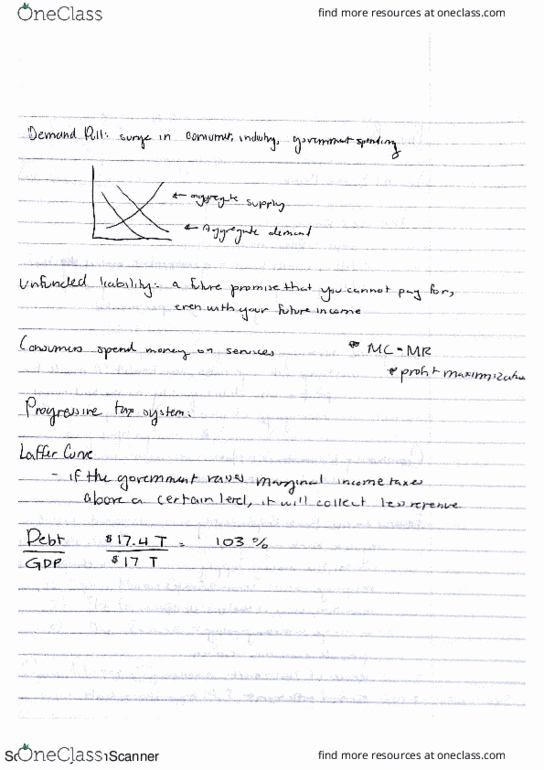 OneClass
find more resources at oneclass.com
Demand Pull: surge in consumer, industry, government spending
← aggregate supply
← Aggregate demand
Unfunded liability: a future promise that you cannot pay for,
even with your future income
Consumers spend money on services
MC = MR
profit maximization
Progressive tax system:
Laffer Curve
- if the government raises marginal income taxes
above a certain level, it will collect less revenue
Debt $17.4 T = 103 %
GDP $17 T
OneClass Scanner
find more resources at oneclass.com